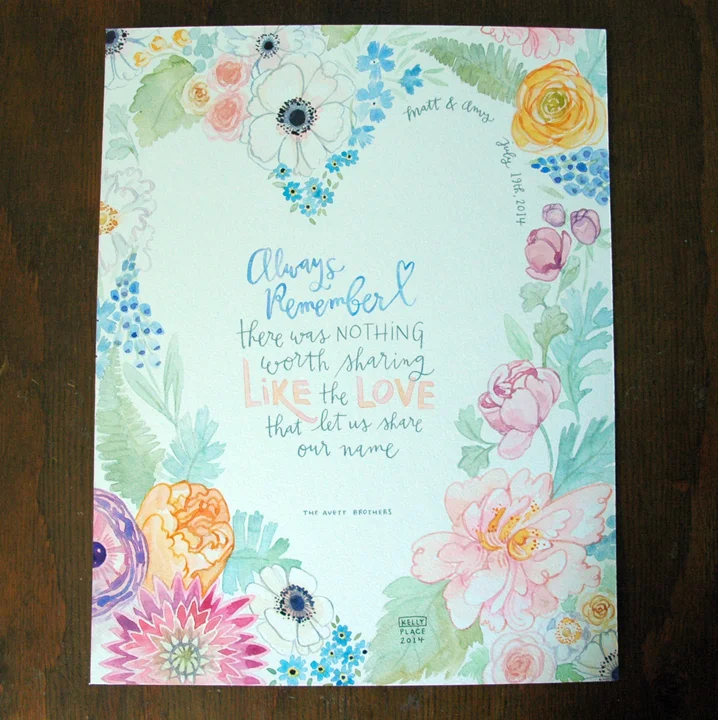 Matt & Amy
July 19th, 2014
Always
Remember
there was NOTHING
worth sharing
LIKE the LOVE
that let us share
our name
THE AVETT BROTHERS
KELLY
PLACE
2014